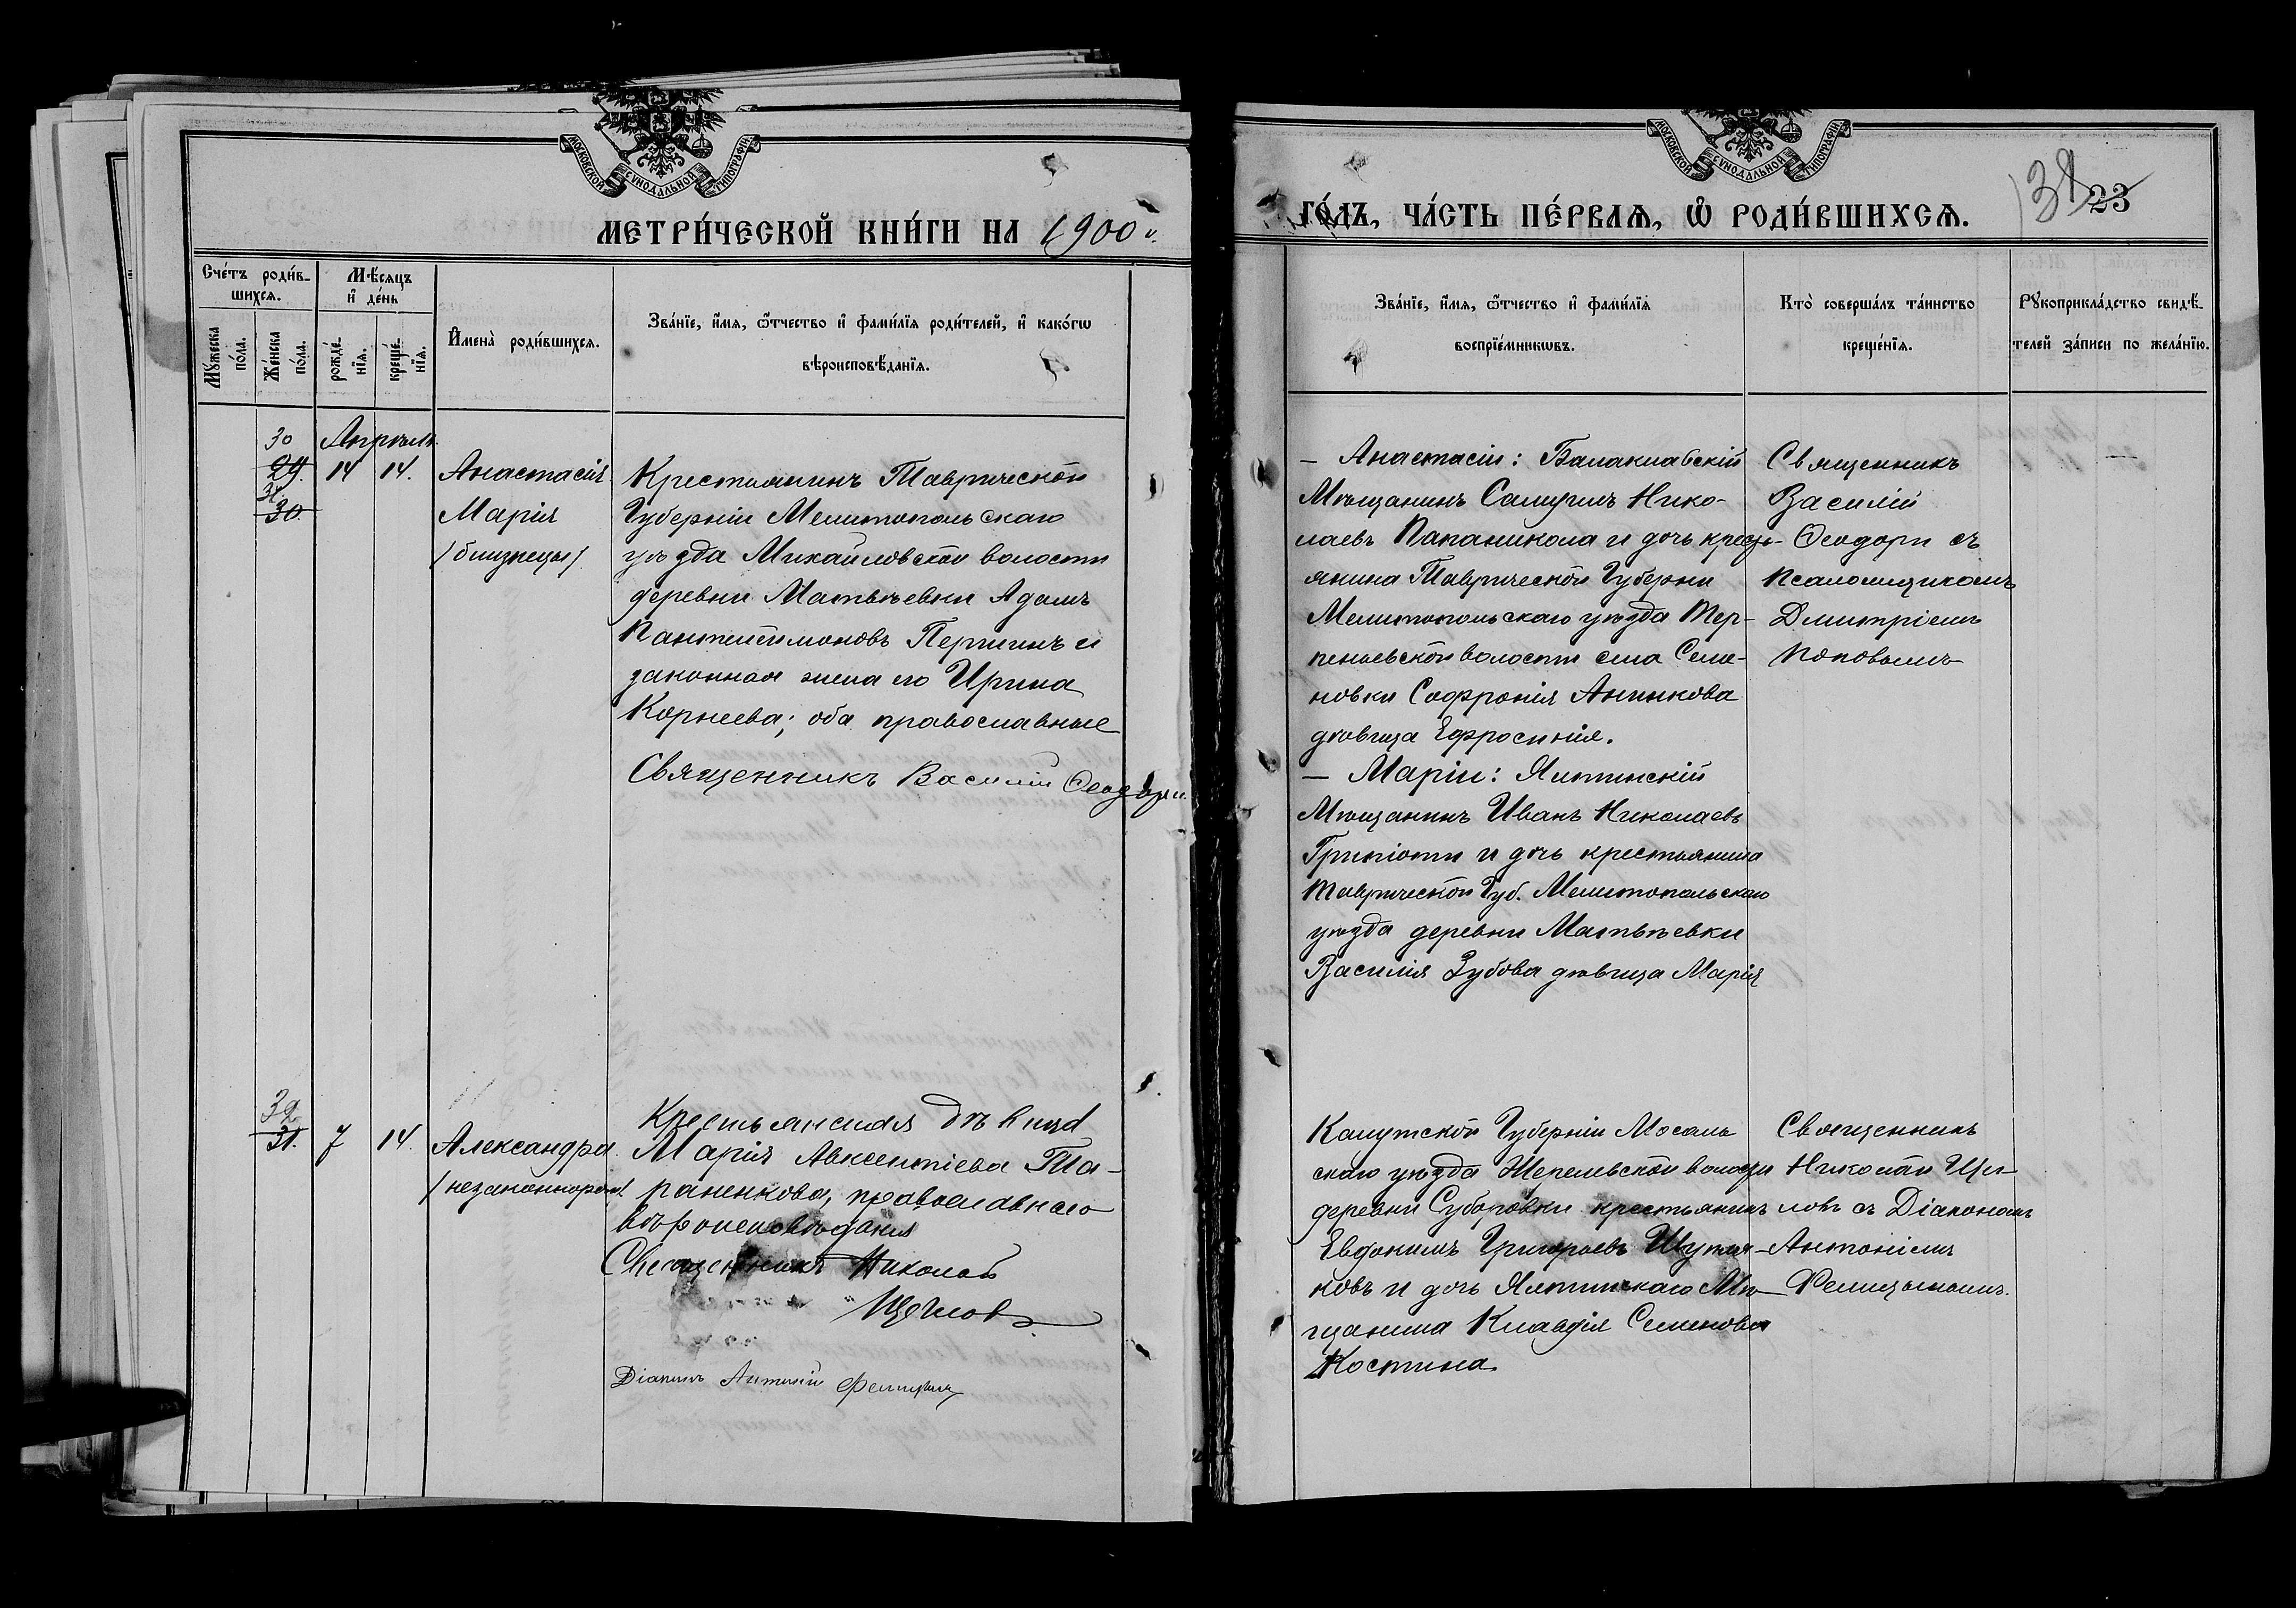 МОСКОВСКОЙ СѴНОДАЛЬНОЙ ТИПОГРАФІИ
МЕТРИ́ЧЕСКОЙ КНИ́ГИ НА 1900 г.
Сче́тъ роди́в-
шихсѧ.
Мѣ́сѧцъ
и҆ де́нь
Мꙋ́жеска
по́ла.
Же́нска
по́ла.
рожде́-
нїѧ.
креще́-
нїѧ.
И҆мена̀ роди́вшихсѧ.
Зва́нїе, и҆́мѧ, ѻ҆́тчество и҆ фами́лїѧ роди́телей, и҆ како́гѡ
вѣроисповѣ́данїѧ.
30
Апрѣль
29.
14
14.
Анастасія
31.
30.
Марія
/близнецы/
Крестьянинъ Таврической
Губерніи Мелитопольскаго
уѣзда Михайловской волости
деревни Матвѣевки Адамъ
Пантелеимоновъ Перший и
законная жена его Ирина
Корнеева; оба православные
Священникъ Василій Ѳеодори
32.
31.
7
14.
Александра
/незаконнорож/.
Крестьянская дѣвица
Марія Авксентіева Та-
раненкова, православнаго
вѣроисповѣданія
Священникъ Николай
Щегловъ
Діаконъ Антоній Фелицынъ
МОСКОВСКОЙ СѴНОДАЛЬНОЙ ТИПОГРАФІИ
ГО́ДЪ, ЧА́СТЬ ПЕ́РВАѦ, Ѡ҆ РОДИ́ВШИХСѦ.
38
23
Зва́нїе, и҆́мѧ, ѻ҆́тчество и҆ фами́лїѧ
воспрїе́мникѡвъ.
Кто̀ соверша́лъ та́инство
креще́нїѧ.
Рꙋкоприкла́дство свидѣ́-
телей за́писи по жела́нїю.
— Анастасіи: Балаклавскій
Мѣщанинъ Самуилъ Нико-
лаевъ Папаникола и дочь кресть-
янина Таврической Губерни
Мелитопольскаго уѣзда Тер-
пеньевской волости села Семе-
новки Софронія Аникова
дѣвица Ефросинія.
— Маріи: Ялтинскій
Мѣщанинъ Иванъ Николаевъ
и дочь крестьянина
Таврической Губ. Мелитопольскаго
уѣзда деревни Матвѣевки
Василія Зубова дѣвица Марія
Священникъ
Василій
Ѳеодори съ
Псаломщикомъ
Дмитріемъ
Поповымъ
Калужской Губерніи Мосаль
скаго уѣзда волости
деревни Субботовки крестьянинъ
Евдокимъ Григорьевъ
ковъ и дочь Ялтинскаго Мѣ-
щанина Клавдія Семенова
Костина
Священникъ
Николай Щег-
ловъ съ Діакономъ
Антоніемъ
Фелицынымъ.